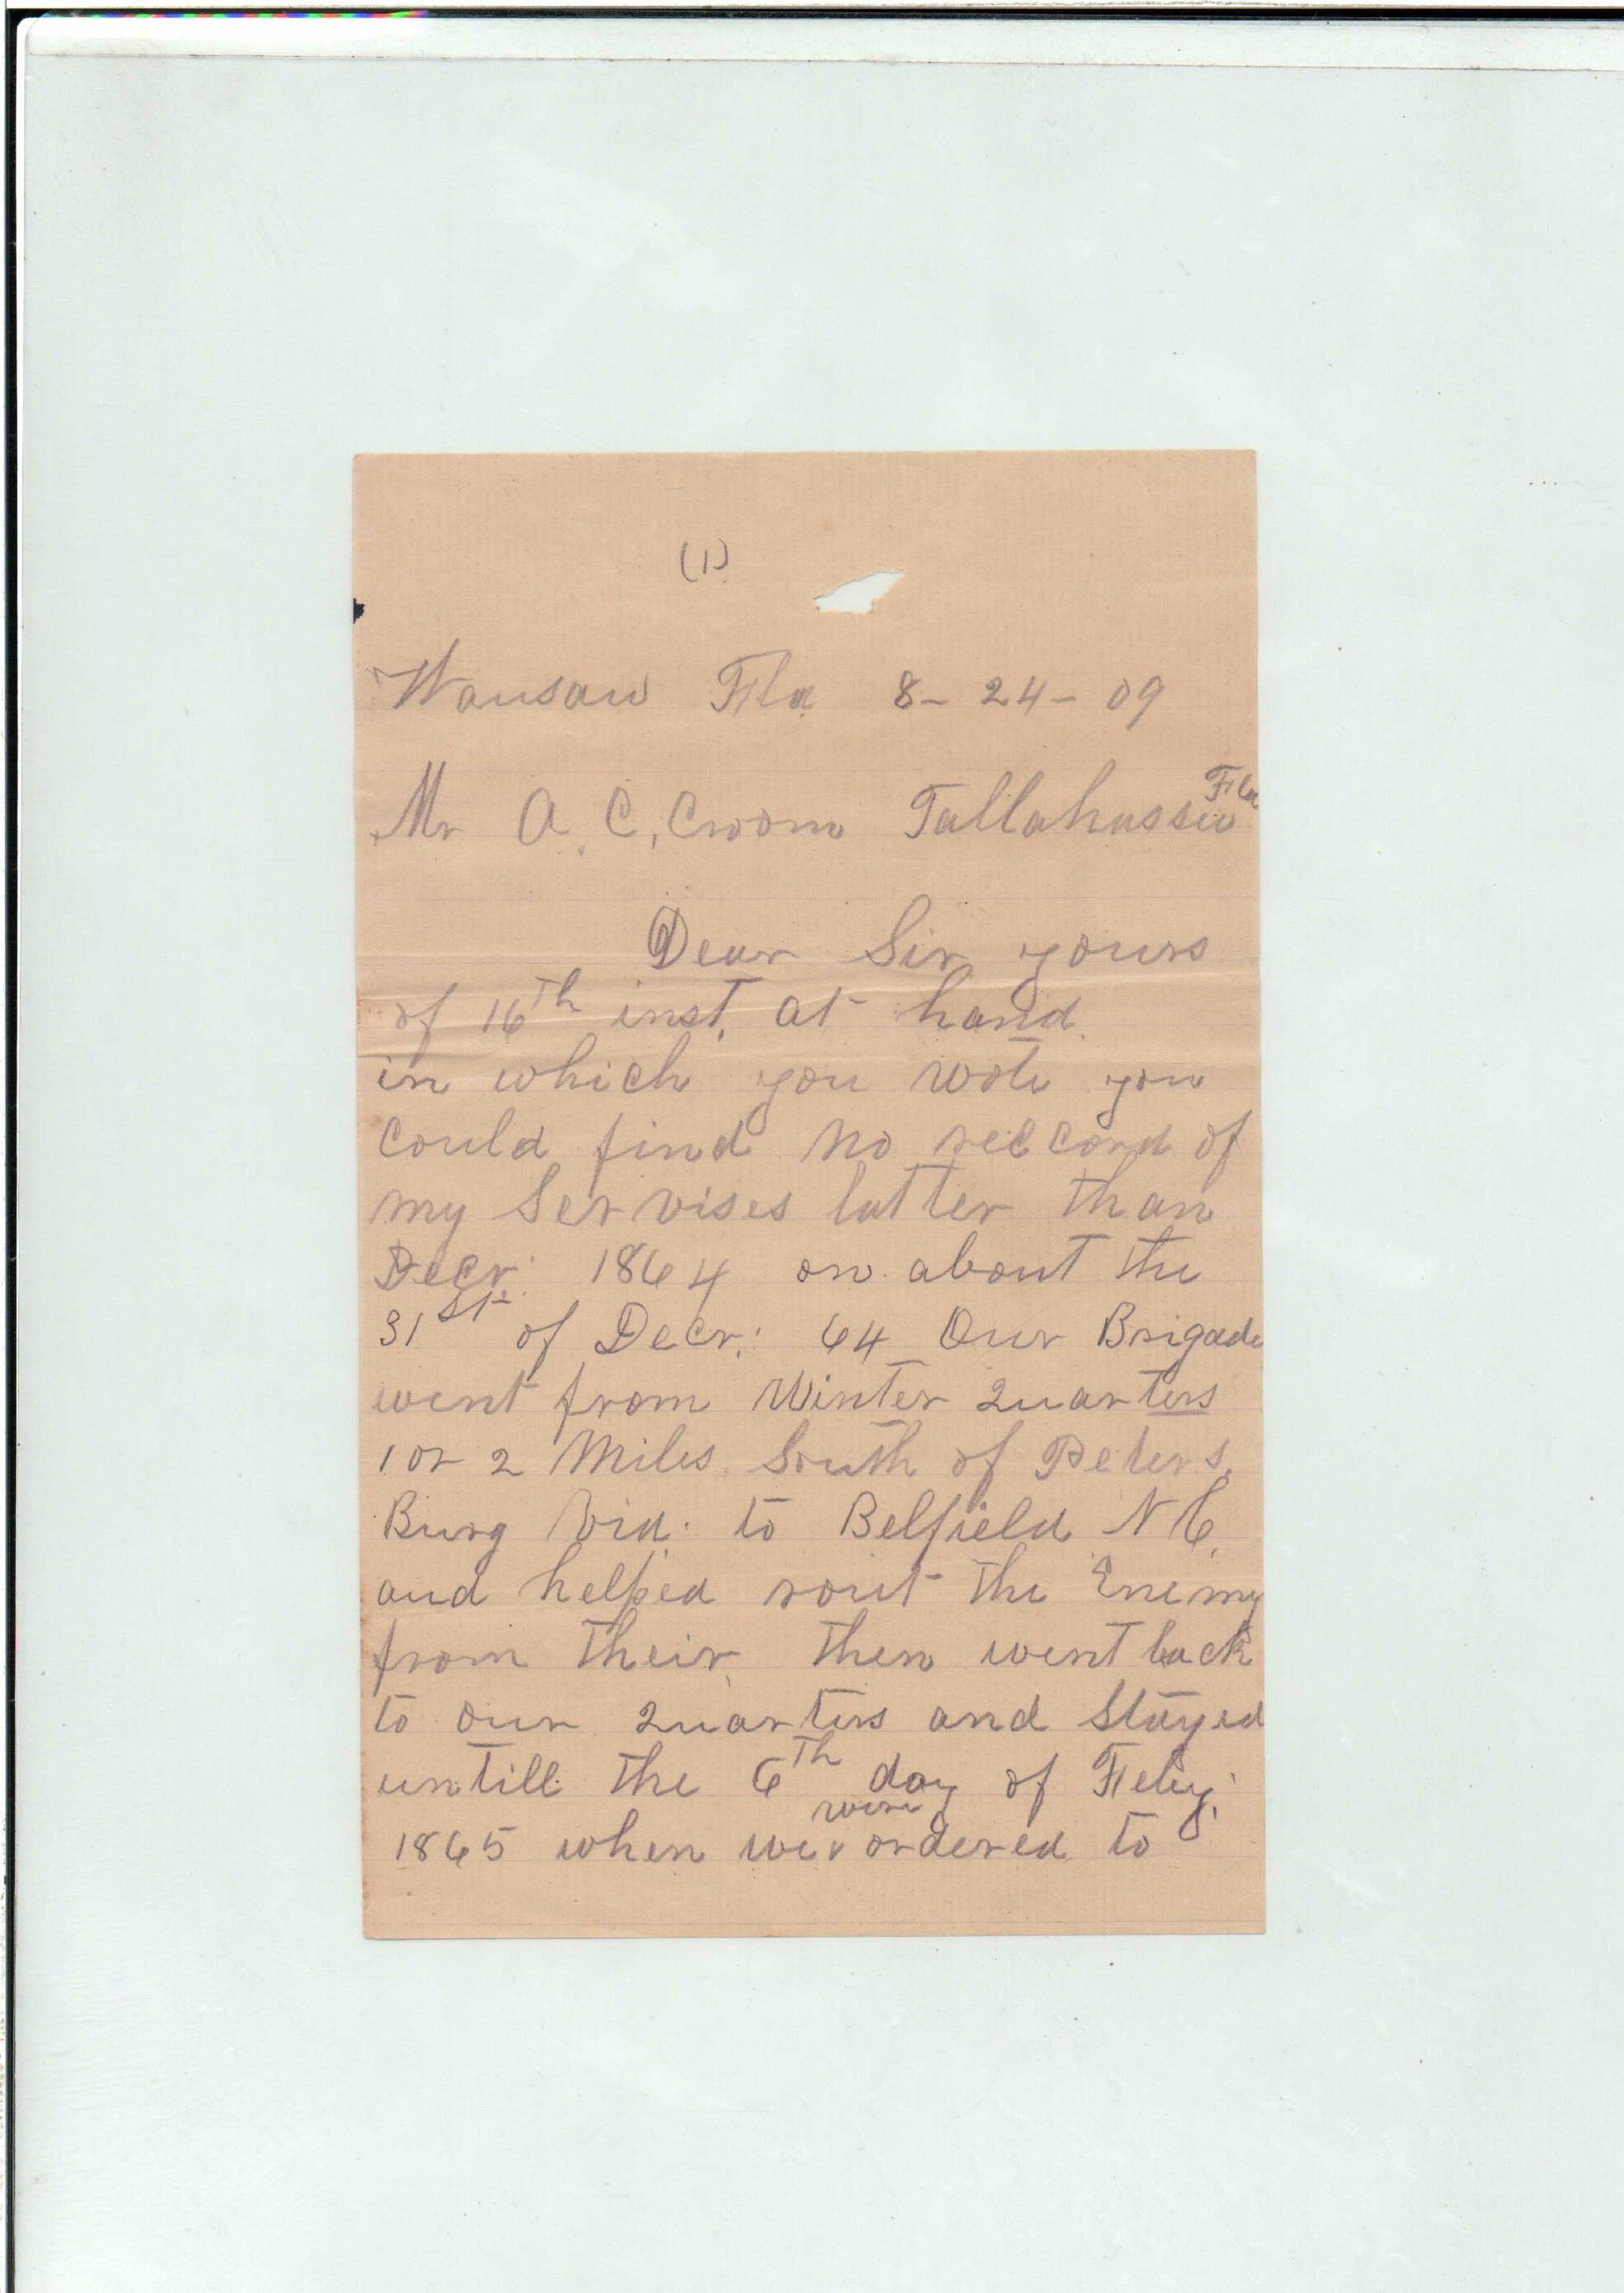 (1)
Wausau Fla. 8 - 24 - 09
Mr A. C, Croom Tallahassee Fla
Dear Sir yours
of 16th inst, at hand.
in which you wote you
could find no reccord of
my Servises latter than
Decr: 1864 on about the
31st of Decr: 64 Our Brigade
went from Winter Quarters
1 or 2 Miles South of Peters,
Burg Via. to Belfield N C,
and helped rout the Enemy
from their, then went back
to our Quarters and Stayed
untill the 6th day of Feby:
1865 when we were ordered to